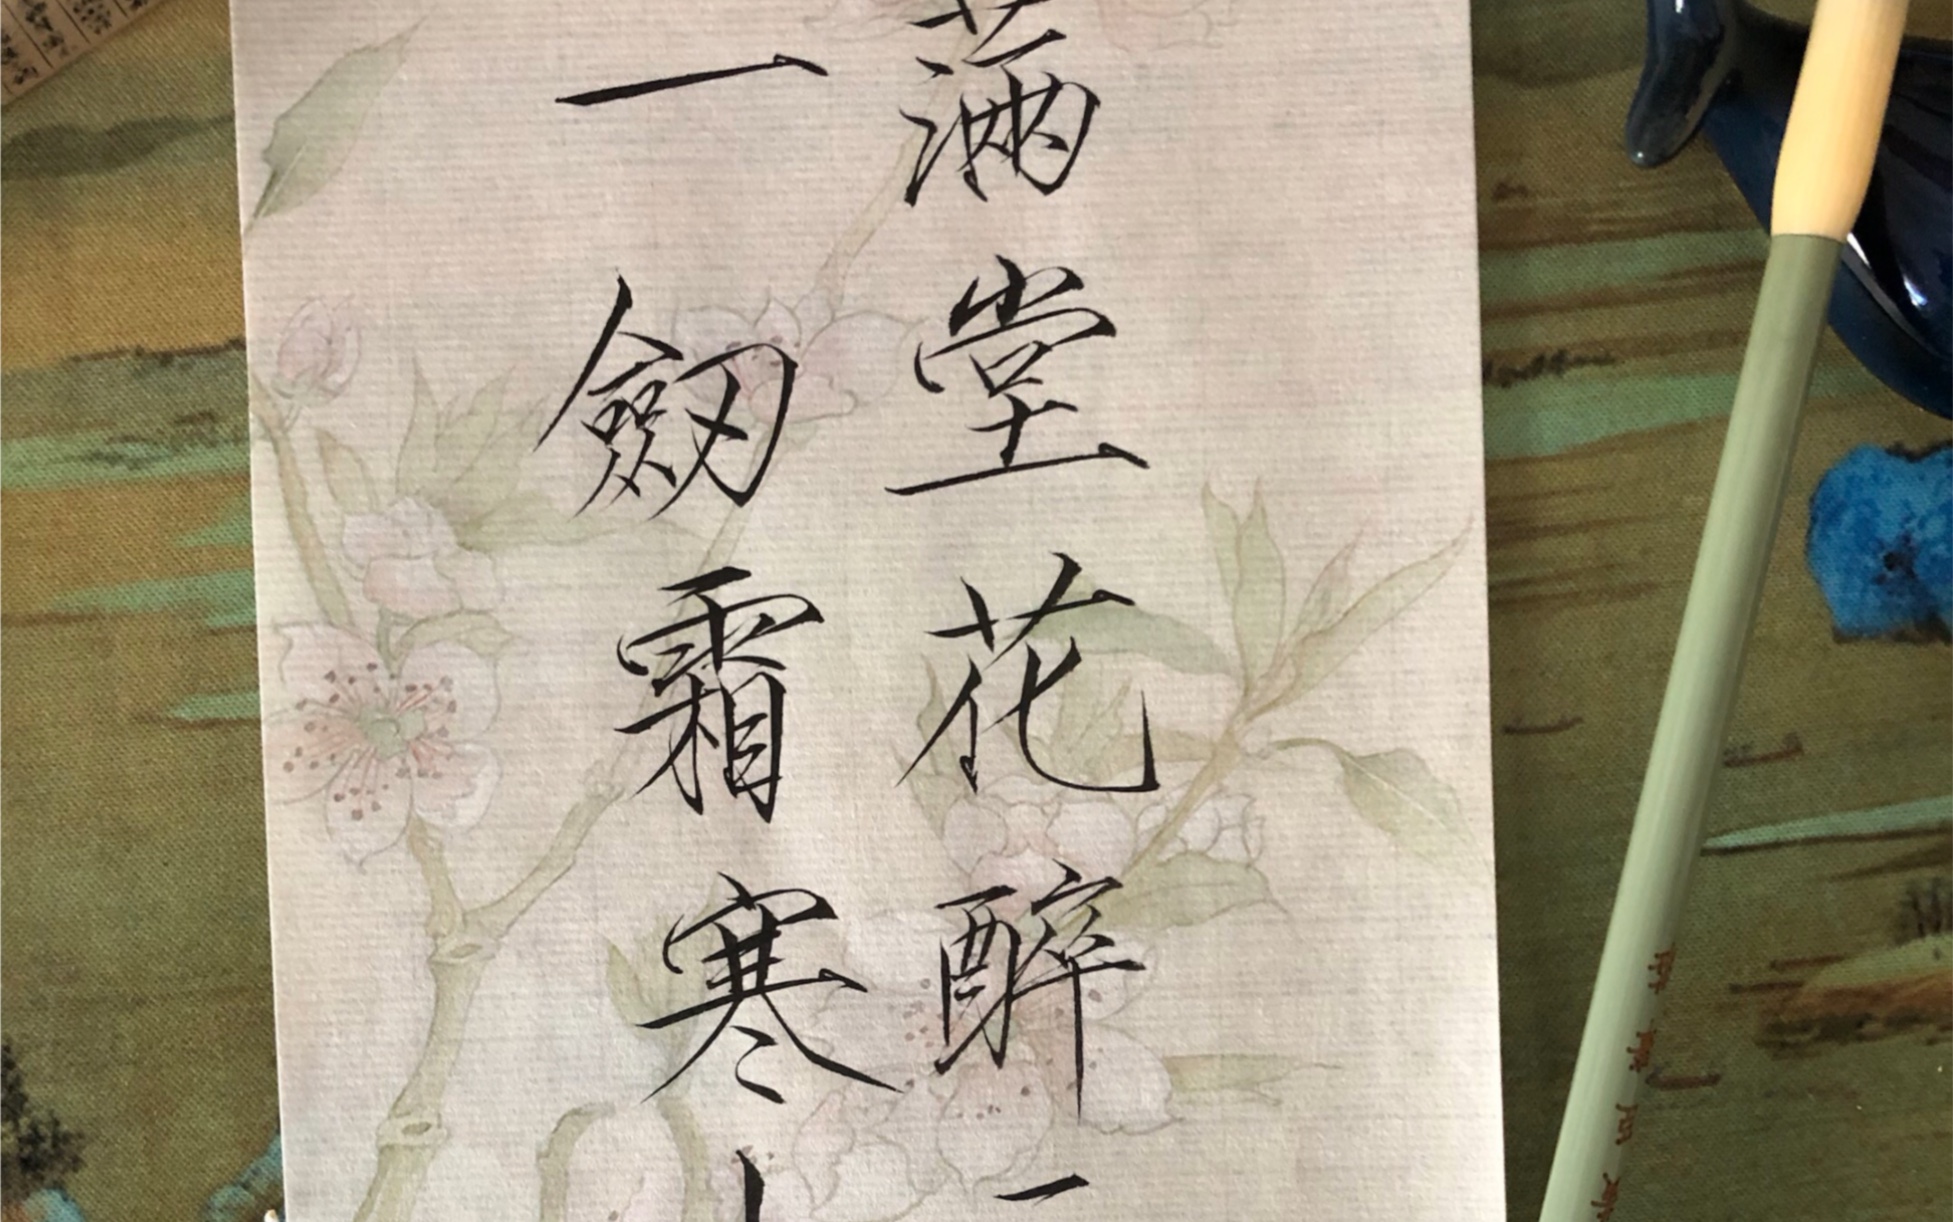 滿堂花醉
一劔霜寒